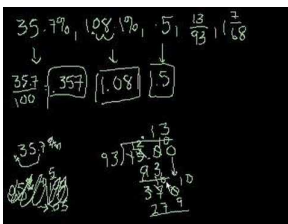 35.7%, 108.1%, .5, 13/93, 1 7/68
35.7/100 = .357 1.081 1.5
35.7
.13
93)13.00
93
370
279